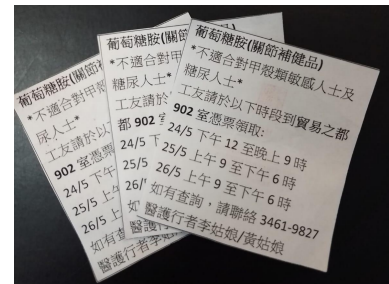 葡萄糖胺(關節補健品)
*不適合對甲殼類敏感人士及
糖尿人士*
工友請於以下時段到貿易之都
902 室憑票領取:
24/5 下午 12 至晚上 9 時
25/5 上午 9 至下午 6 時
26/5 上午 9 至下午 6 時
如有查詢，請聯絡 3461-9827
醫護行者李姑娘/黃姑娘
葡萄糖胺(關節
*不適合對
糖尿人士*
工友請於
都 902 室
24/5 下
25/5 上
26/
如
醫護
葡萄糖胺(關節
*不適合對甲殼
尿人士*
工友請於以
902 室憑票
24/5 下午
25/5 上午
26/5 上
如有查
醫護行者李